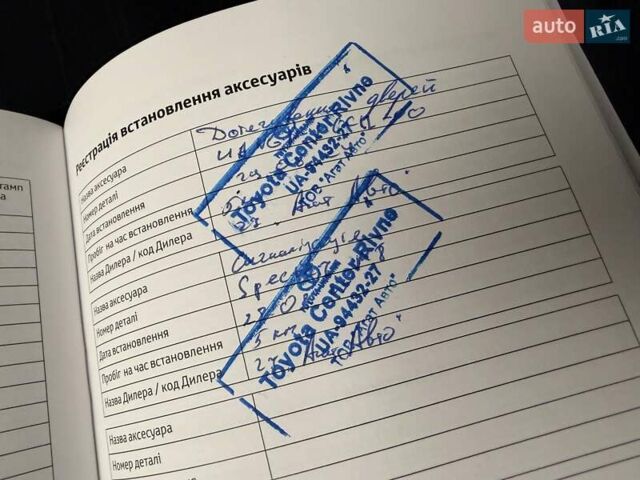 auto RIA
.com
Реєстрація встановлення аксесуарів
Назва аксесуара
дверей
Номер деталі
Дата встановлення
Пробіг на час встановлення
5 км
Назва Дилера / код Дилера
27. Агат Авто.
Toyota Center Rivne
UA-94432-27
ТОВ "Агат Авто"
Назва аксесуара
Сигналізація
Номер деталі
Дата встановлення
Пробіг на час встановлення
5 км
Назва Дилера / код Дилера
27 Агат Авто"
Toyota Center Rivne
UA-94432-27
ТОВ "Агат Авто"
Назва аксесуара
Номер деталі
тамп